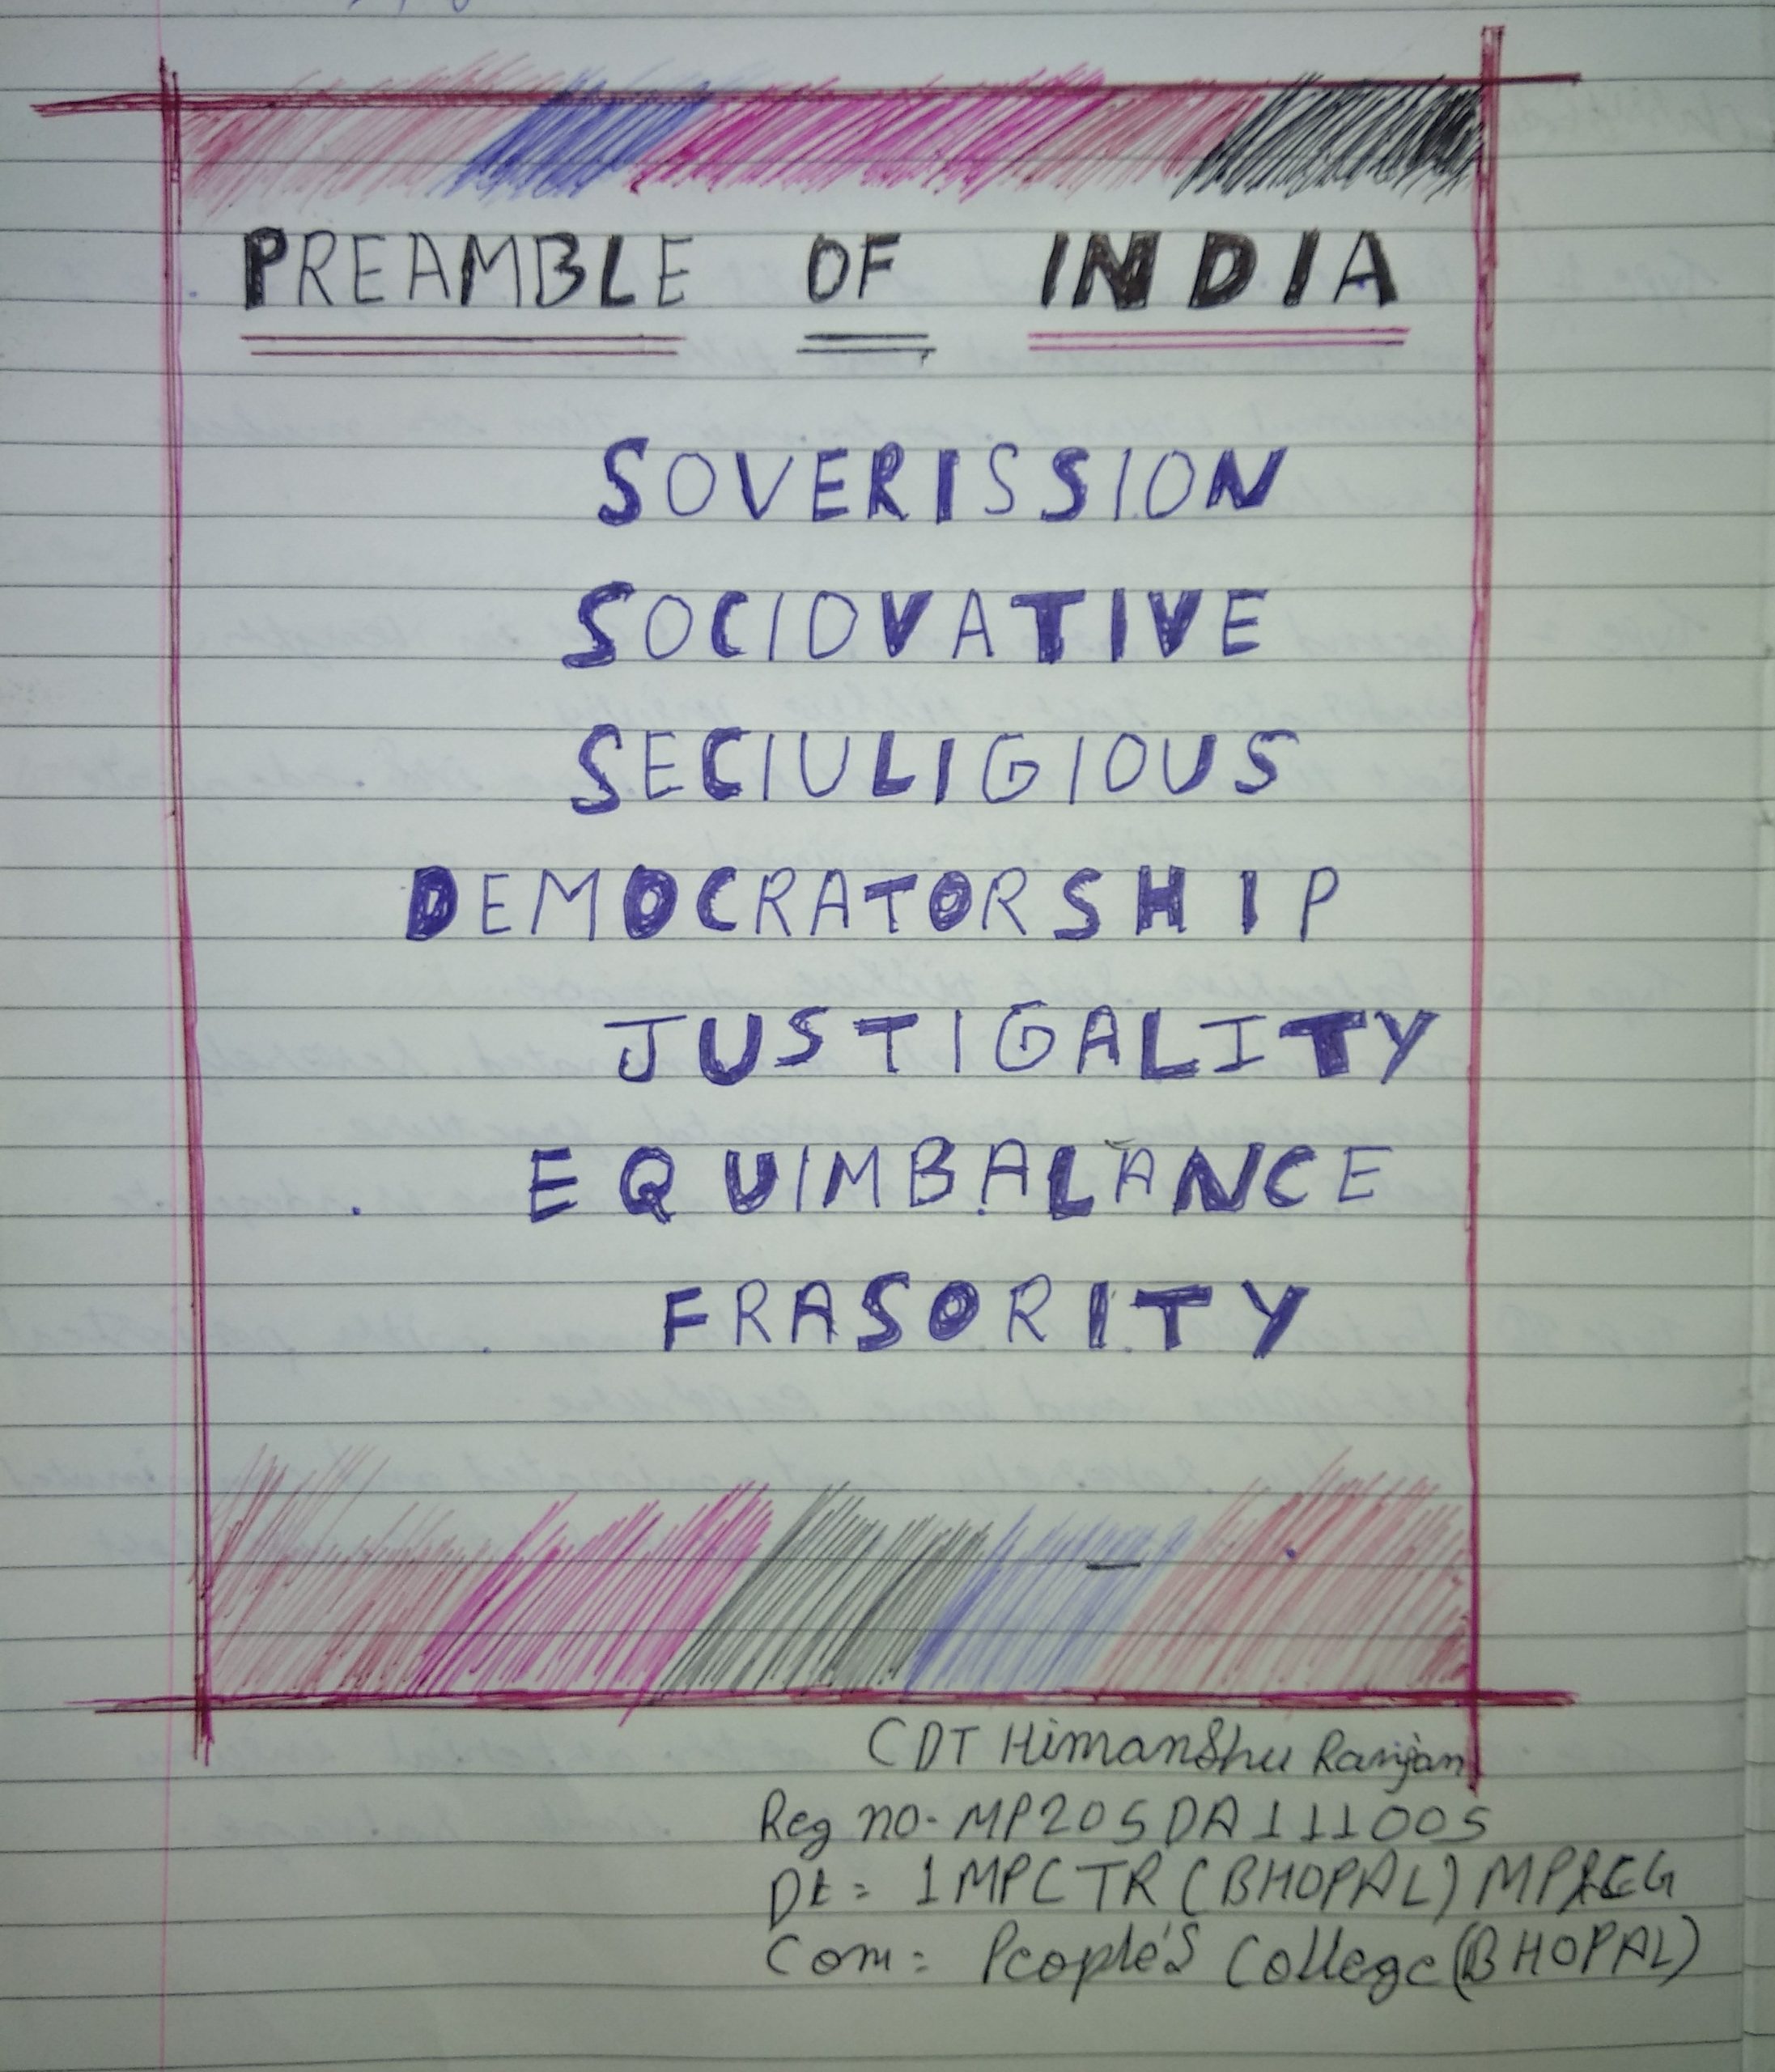 PREAMBLE OF INDIA
SOVERISSION
SOCIOVATIVE
SECIULIGIOUS
DEMOCRATORSHIP
JUSTIGALITY
EQUIMBALANCE
FRASORITY
CDT Himanshu Ranjan
Reg no- MP20SDA111005
Dt = 1MPCTR (BHOPAL) MP&CG
Com = People's College (BHOPAL)